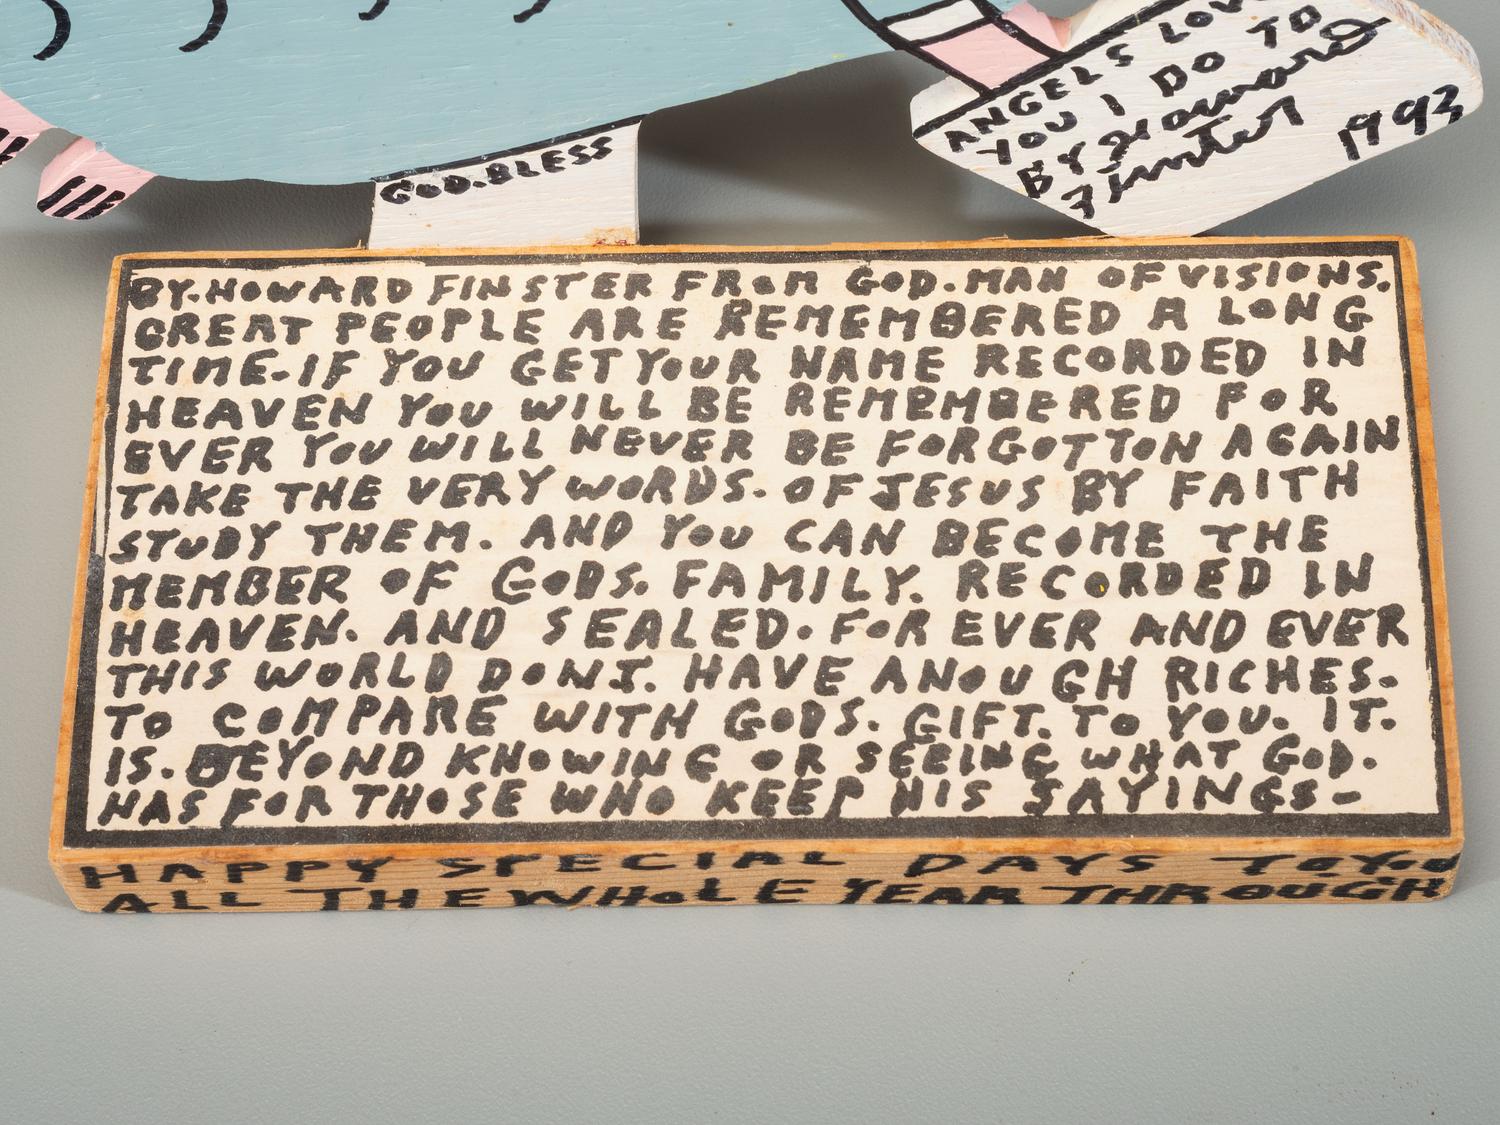 ANGELS LOVE
YOU I DO TO
BY Howard
Finster
1993
GOD.BLESS
BY.HOWARD FINSTER FROM GOD.MAN OF VISIONS.
GREAT PEOPLE ARE REMEMBERED A LONG
TIME.IF YOU GET YOUR NAME RECORDED IN
HEAVEN YOU WILL BE REMEMBERED FOR
EVER YOU WILL NEVER BE FORGOTTON AGAIN
TAKE THE VERY WORDS. OF JESUS BY FAITH
STUDY THEM. AND YOU CAN BECOME THE
MEMBER OF GODS. FAMILY. RECORDED IN
HEAVEN. AND SEALED. FOR EVER AND EVER
THIS WORLD DONT. HAVE ANOUGH RICHES.
TO COMPARE WITH GODS. GIFT. TO YOU. IT.
IS. BEYOND KNOWING OR SEEING WHAT GOD.
HAS FOR THOSE WHO KEEP HIS SAYINGS-
HAPPY SPECIAL DAYS TO.YOU
ALL THE WHOLE YEAR THROUGH